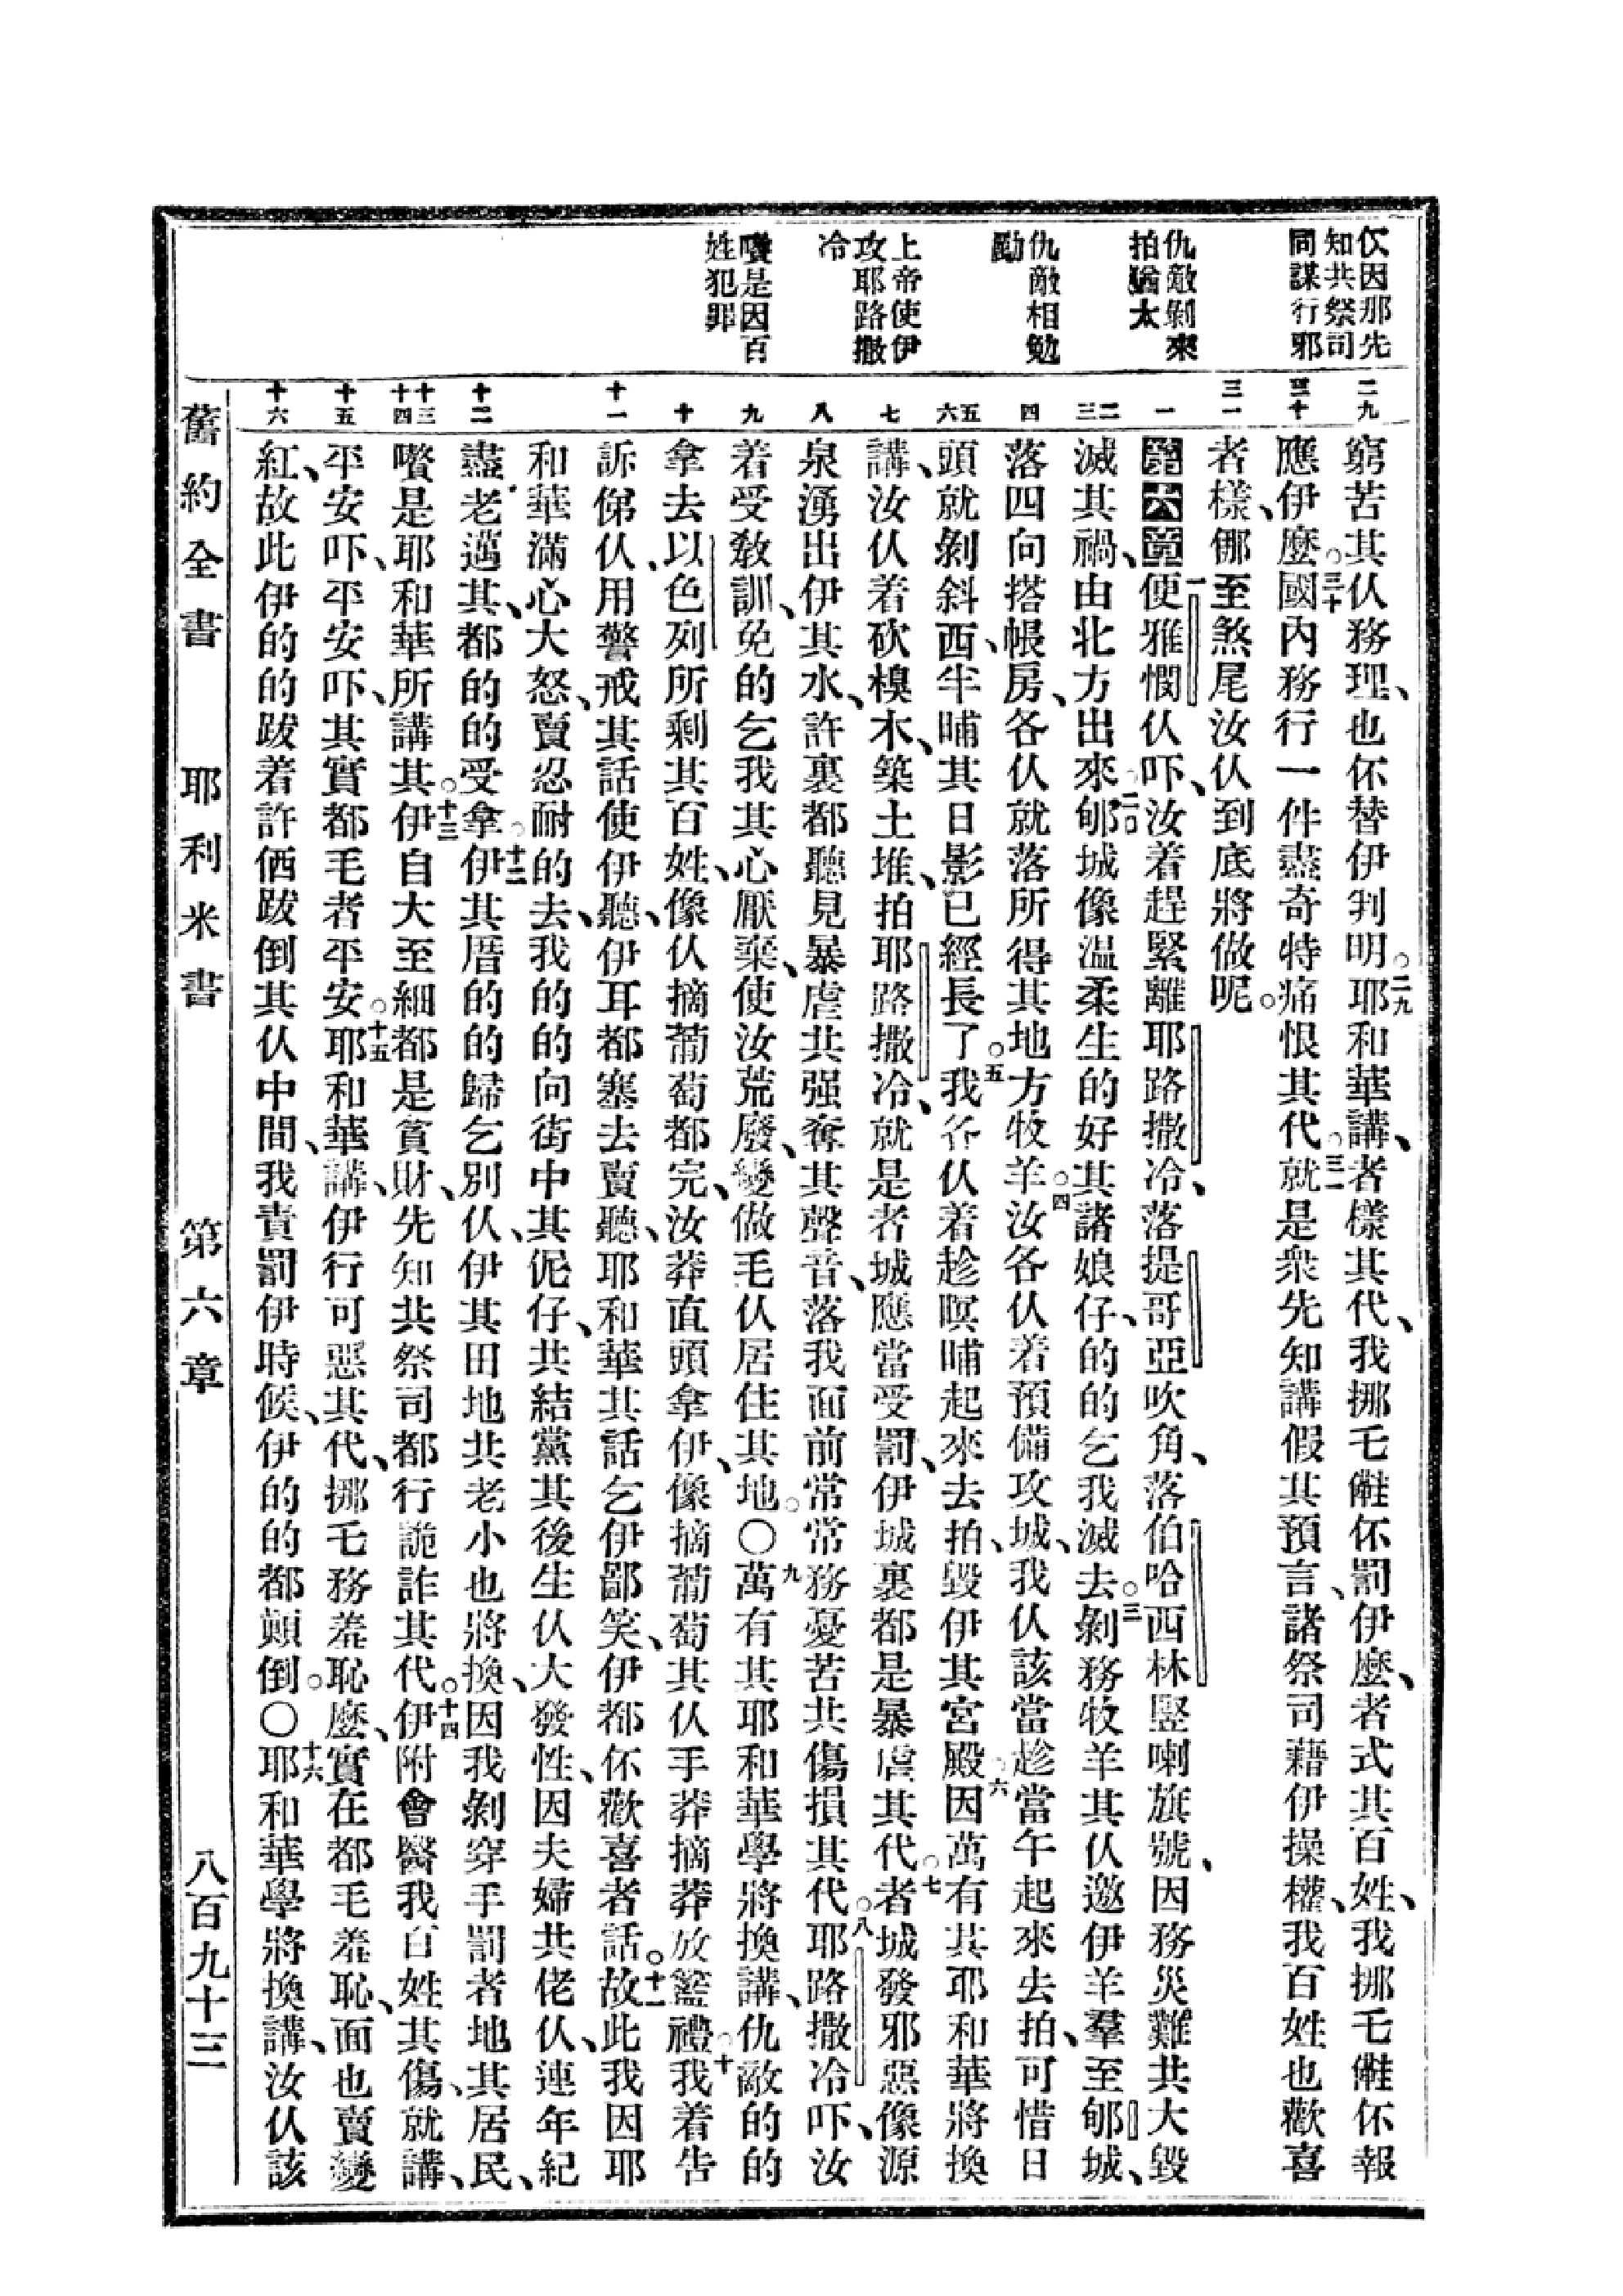 仅因那先
知共祭司
同謀行邪
仇敵剝來
拍猶太
仇敵相勉
勵
上帝使伊
攻耶路撒
冷
嚽是因百
姓犯罪
二九
三十
三一
一
二三
四
五六
七
八
九
十
十一
十二
十三十四
十五
十六
窮苦其仫務理、也伓替伊判明。二九耶和華講、者樣其代、我挪乇雔伓罰伊麼、者式其百姓、我挪乇雔伓報
應伊麼。三十國內務行一件盡奇特痛恨其代。三一就是衆先知講假其預言、諸祭司藉伊操權、我百姓也歡喜
者樣、倻至煞尾汝仫到底將做呢。
第六章一便雅憫仫吓、汝着趕緊離耶路撒冷、落提哥亞吹角、落伯哈西林竪喇旗號、因務災難共大毀
滅其禍、由北方出來。二郇城像温柔生的好其諸娘仔、的的乞我滅去。三剝務牧羊其仫邀伊羊羣至郇城、
落四向搭帳房、各仫就落所得其地方牧羊。四汝各仫着預備攻城、我仫該當趁當午起來去拍、可惜日
頭就剝斜西、半晡其日影已經長了。五我各仫着趁暝晡起來去拍、毀伊其宮殿。六因萬有其耶和華將換
講、汝仫着砍樹木、築土堆、拍耶路撒冷、就是者城應當受罰、伊城裏都是暴虐其代。七者城發邪惡像源
泉湧出伊其水、許裏都聽見暴虐共强奪其聲音、落我面前常常務憂苦共傷損其代。八耶路撒冷吓、汝
着受教訓、免的乞我其心厭棄、使汝荒廢、變做毛仫居住其地。〇九萬有其耶和華學將換講、仇敵的的
拿去以色列所剩其百姓、像仫摘葡萄都完、汝莽直頭拿伊、像摘葡萄其仫手莽摘莽放籃禮。十我着告
訴俤仫、用警戒其話使伊聽、伊耳都塞去賣聽、耶和華其話乞伊鄙笑、伊都伓歡喜者話。十一故此我因耶
和華滿心大怒、賣忍耐的去、我的的向街中其伲仔、共結黨其後生仫大發性、因夫婦共佬仫、連年紀
盡老邁其、都的的受拿。十二伊其厝的的歸乞別仫、伊其田地共老小也將換、因我剝穿手罰者地其居民、
嚽是耶和華所講其。十三伊自大至細都是貪財、先知共祭司都行詭詐其代。十四伊附會醫我百姓其傷、就講、
平安吓、平安吓、其實都毛者平安。十五耶和華講、伊行可惡其代、挪乇務羞恥麼、實在都毛羞恥、面也賣變
紅、故此伊的的跋着許価跋倒其仫中間、我責罰伊時候、伊的的都顛倒。〇十六耶和華學將換講、汝仫該
舊約全書　耶利米書　第六章　八百九十三